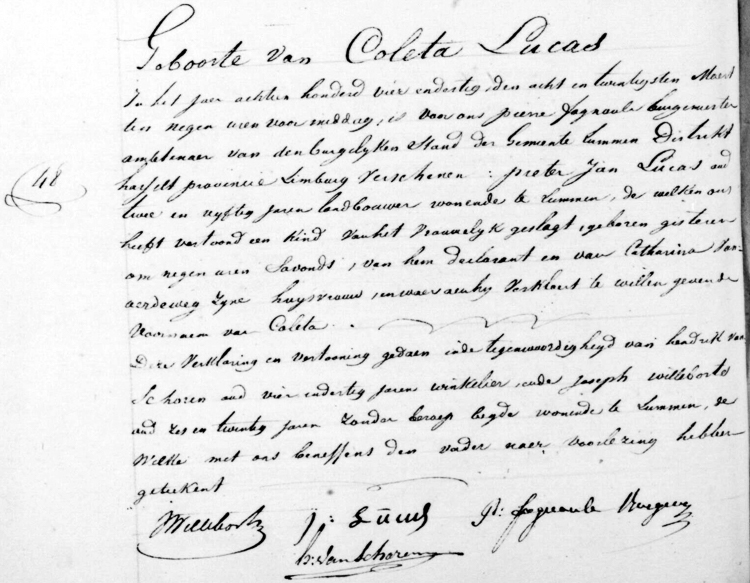 Geboorte van Coleta Lucas
In het jaer achtien honderd vier endertig, den acht en twintigsten Maert
ten negen uren voor middag, is voor ons pierre Jagnaule burgemeester
ambtenaer van den burgelyken Stand der Gemeente Lummen Distrikt
hasselt provincie Limburg Verschenen : pieter Jan Lucas oud
48
twee en vyftig jaren landbouwer wonende te Lummen, de welken ons
heeft vertoond een kind van het Vrouwelyk geslagt, geboren gisteren
om negen uren Savonds, van hem declarant en van Catharina Van-
aerdeweg zyne huysvrouw, en waer aen hy Verklaert te willen geven de
Voornaem van Coleta.
Deze Verklaring en Vertooning gedaen inde tegenwoordigheyd van hendrik Van
Schoren oud vier endertig jaren winkelier, ende Joseph Willeborts
oud zes en twintig jaren zonder beroep beyde wonende te Lummen, de
Welke met ons beneffens den vader naer voorlezing hebben
getekent
JWillebortz p: j: Lucas P: Jagnaule
h: Van Schoren